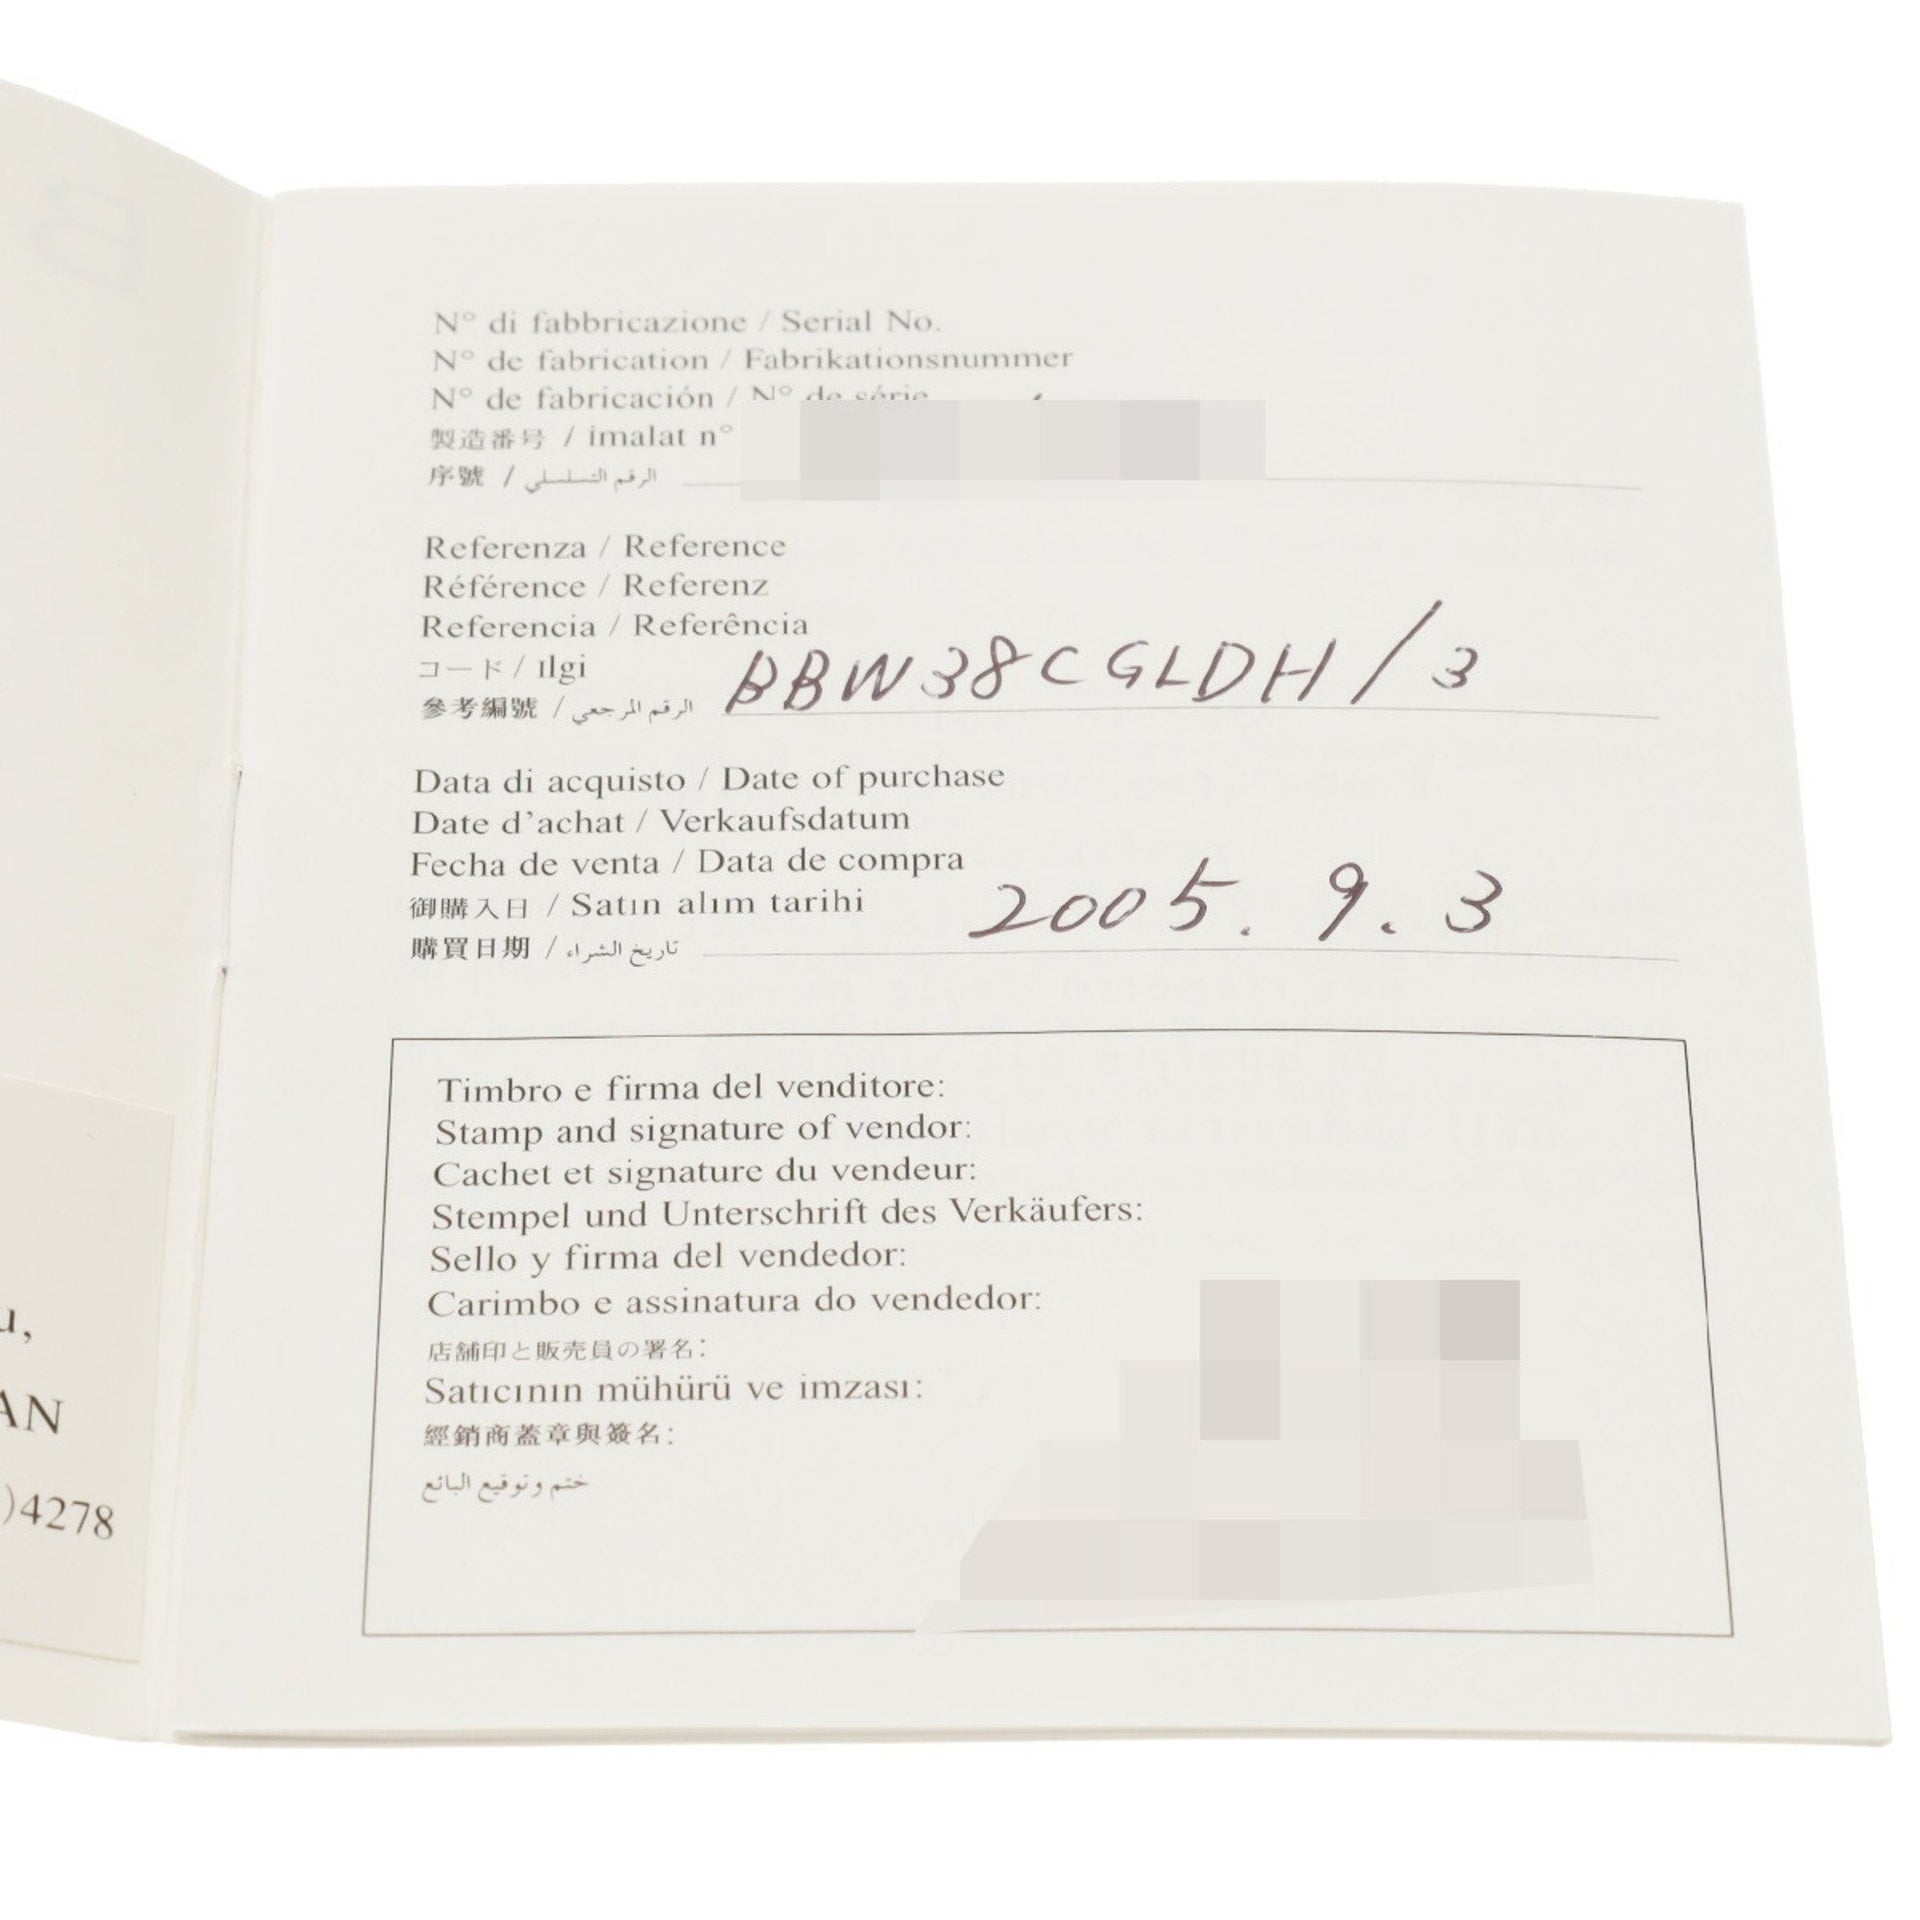 N° di fabbricazione / Serial No.
N° de fabrication / Fabrikationsnummer
N° de fabricación / N° de série
製造番号 / imalat n°
序號 / الرقم التسلسلي
Referenza / Reference
Référence / Referenz
Referencia / Referência
コード / Ilgi
參考編號 / الرقم المرجعي BBW38CGLDH/3
Data di acquisto / Date of purchase
Date d'achat / Verkaufsdatum
Fecha de venta / Data de compra
御購入日 / Satın alım tarihi 2005. 9. 3
購買日期 / تاريخ الشراء
Timbro e firma del venditore:
Stamp and signature of vendor:
Cachet et signature du vendeur:
Stempel und Unterschrift des Verkäufers:
Sello y firma del vendedor:
Carimbo e assinatura do vendedor:
店舗印と販売員の署名:
Satıcının mühürü ve imzası:
經銷商蓋章與簽名:
ختم وتوقيع البائع
u,
AN
)4278